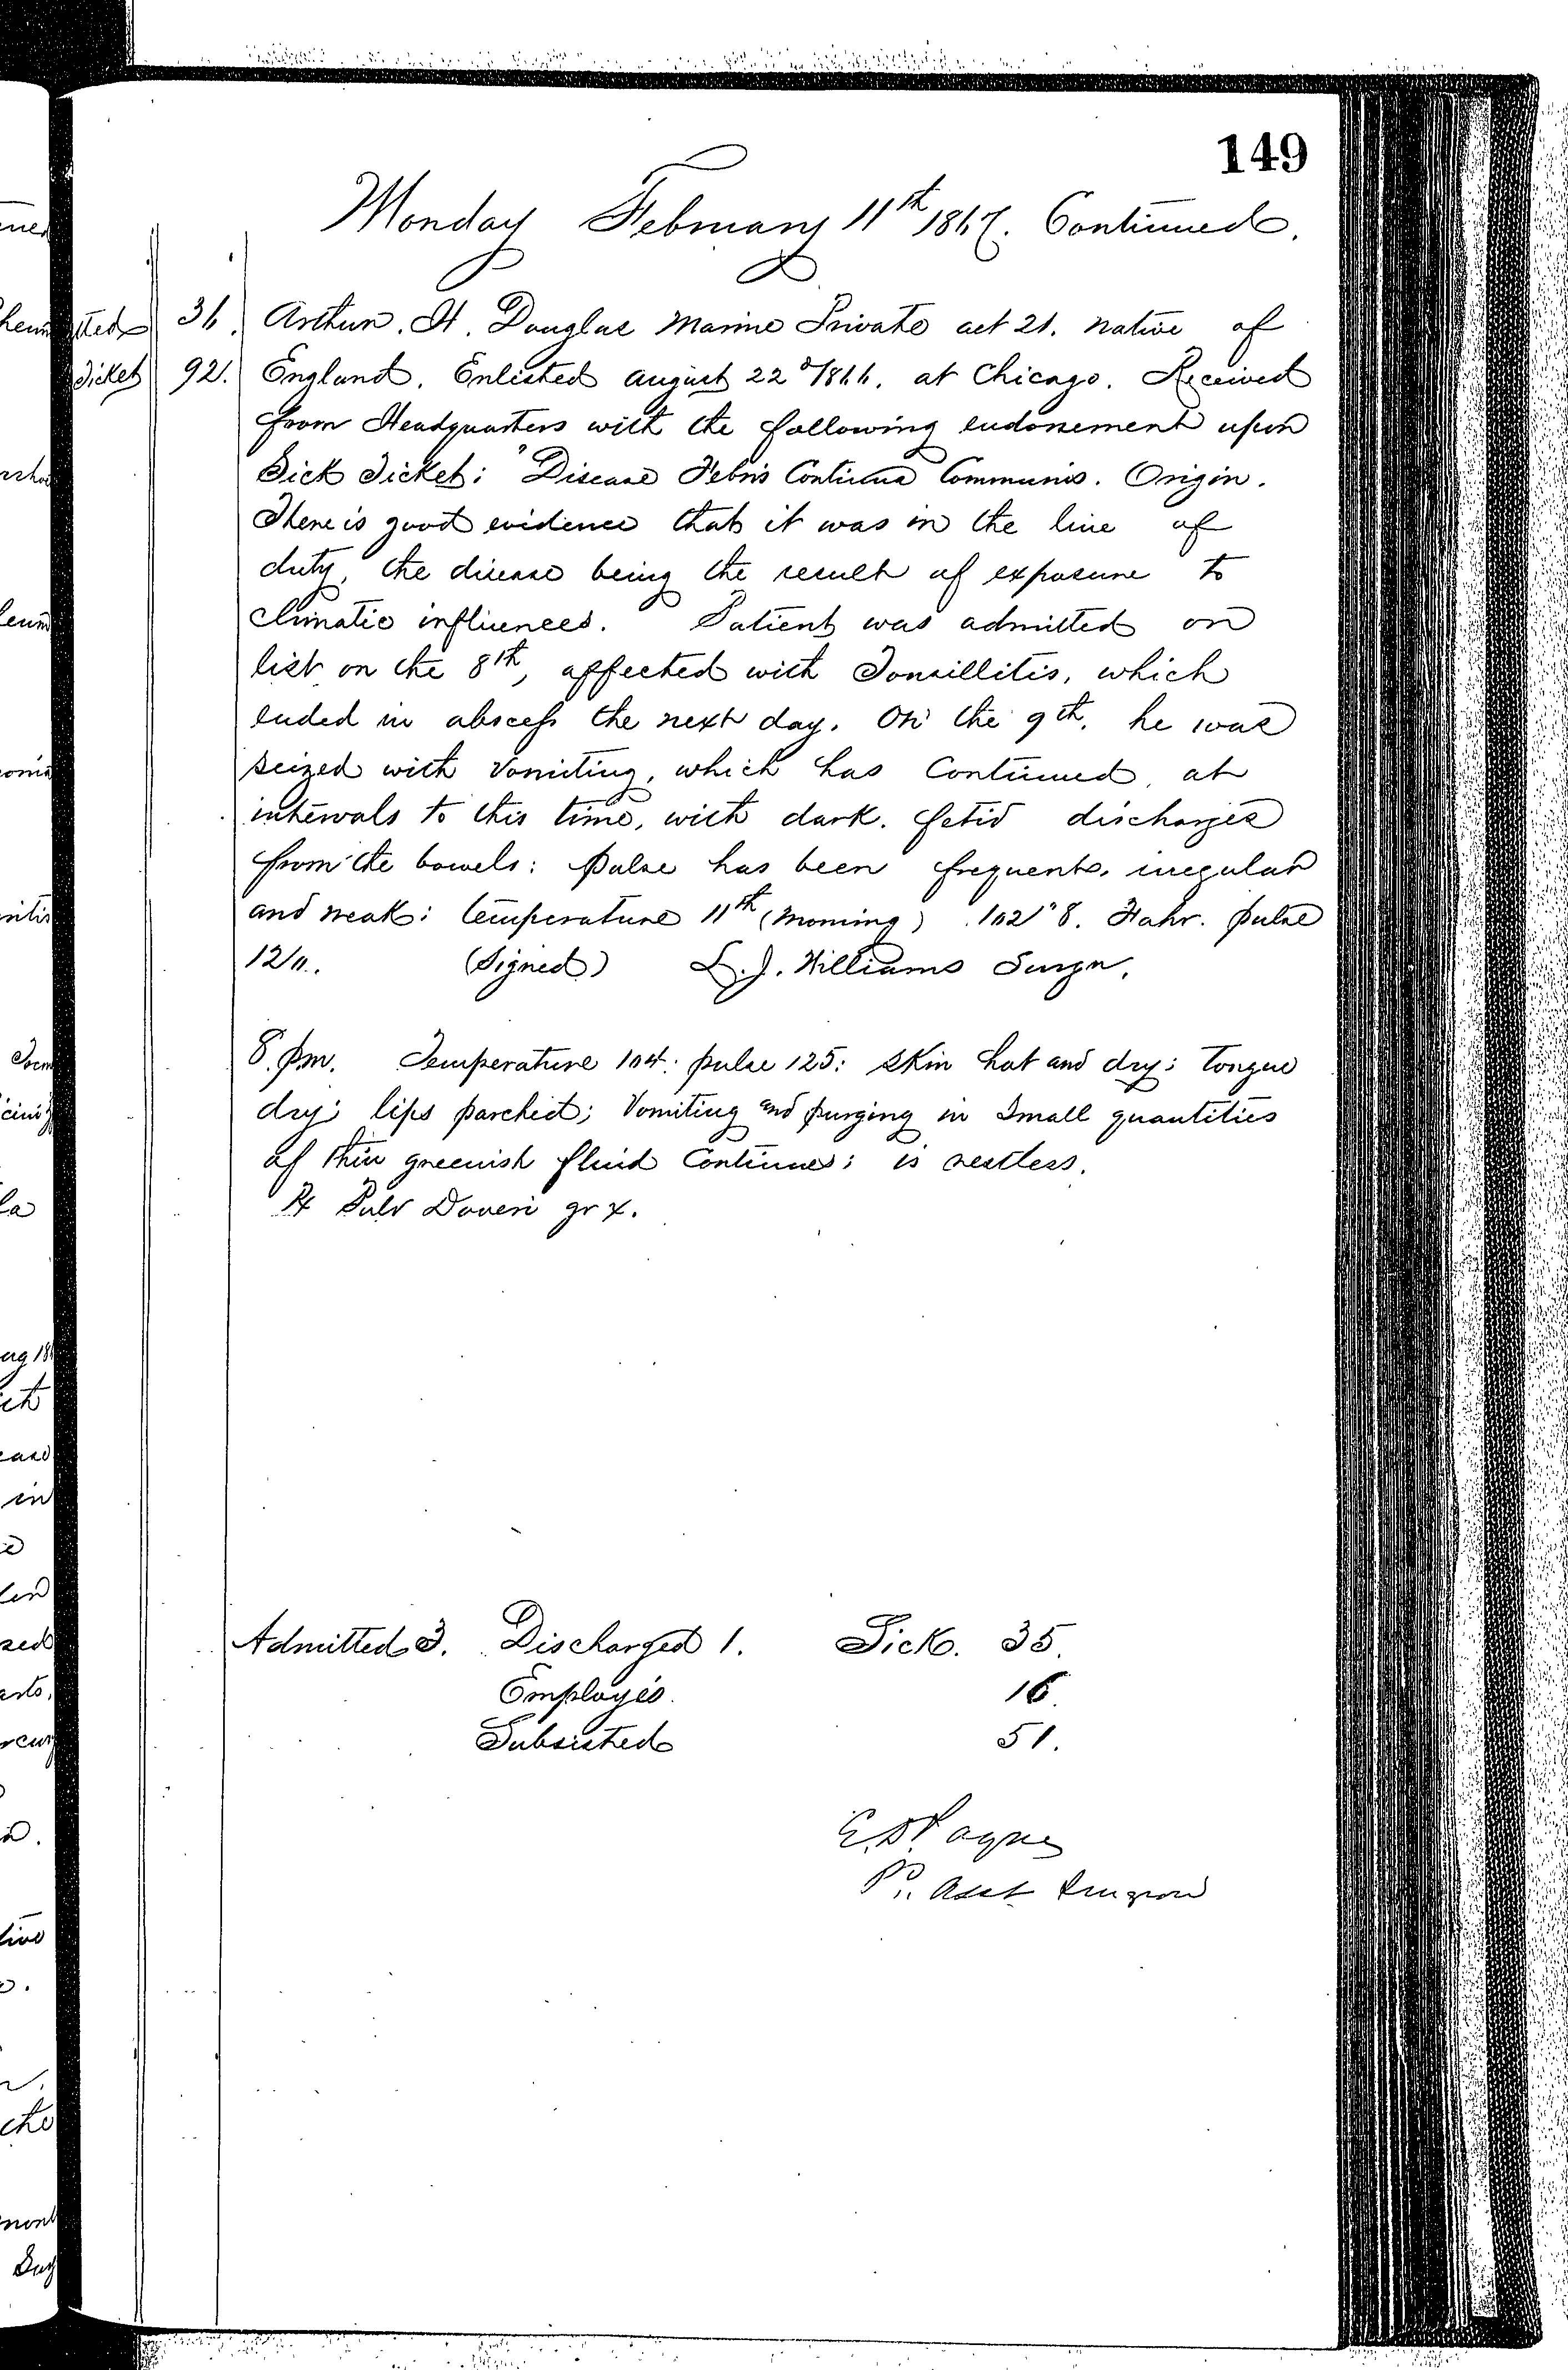 149
Monday February 11th 1867. Continued.
36. Arthur. H. Douglas Marine Private aet 21. native of
Ticket 92. England. Enlisted August 22d/866. at Chicago. Received
from Headquarters with the following endorsement upon
Sick Ticket: "Disease Febris Continua Communis. Origin.
There is good evidence that it was in the line of
duty, the disease being the result of exposure to
climatic influences. Patient was admitted on
list on the 8th, affected with Tonsillitis, which
ended in abscess the next day. On the 9th. he was
seized with vomiting, which has continued at
intervals to this time, with dark. fetid discharges
from the bowels: pulse has been frequent, irregular
and weak: temperature 11th (morning) 102°8. Fahr. pulse
120. (Signed) L. J. Williams Surgn.
8. P.m. Temperature 104: pulse 125: skin hot and dry: tongue
dry; lips parched; vomiting and purging in small quantities
of thin greenish fluid continues; is restless.
℞ Pulv Doveri gr x.
Admitted 3. Discharged 1. Sick. 35.
Employés. 16.
Subsisted 51.
E. D. Payne
P.. Asst Surgeon